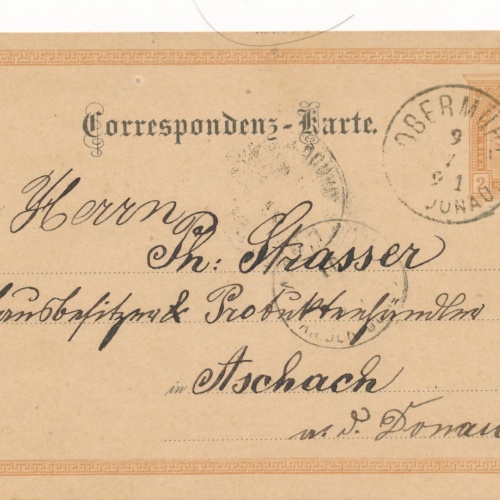 Correspondenz-Karte.
OBERMÜ
9
7
91
DONAU
2
Herrn
Ph: Strasser
ausbesitzer & Produktenhändler
in Aschach
a. d. Donau